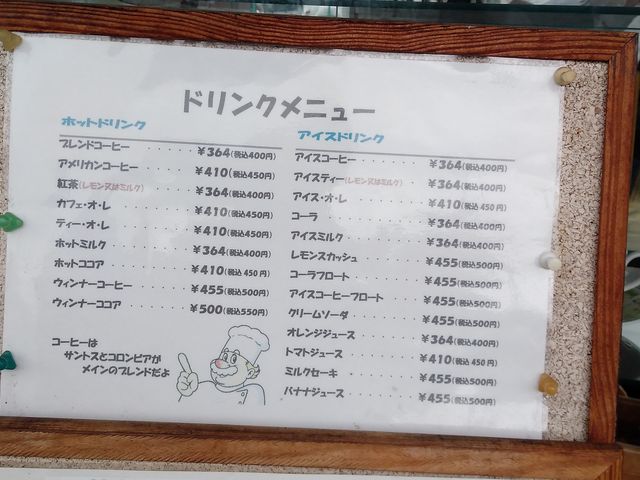 ドリンクメニュー
ホットドリンク
ブレンドコーヒー ‥‥‥ ¥364(税込400円)
アメリカンコーヒー ‥‥‥ ¥410(税込450円)
紅茶(レモン又はミルク) ‥‥‥ ¥364(税込400円)
カフェ・オ・レ ‥‥‥ ¥410(税込450円)
ティー・オ・レ ‥‥‥ ¥410(税込450円)
ホットミルク ‥‥‥ ¥364(税込400円)
ホットココア ‥‥‥ ¥410(税込 450円)
ウィンナーコーヒー ‥‥‥ ¥455(税込500円)
ウィンナーココア ‥‥‥ ¥500(税込550円)
コーヒーは
サントスとコロンビアが
メインのブレンドだよ
アイスドリンク
アイスコーヒー ‥‥‥ ¥364(税込400円)
アイスティー(レモン又はミルク) ‥‥‥ ¥364(税込400円)
アイス・オ・レ ‥‥‥ ¥410(税込 450円)
コーラ ‥‥‥ ¥364(税込400円)
アイスミルク ‥‥‥ ¥364(税込400円)
レモンスカッシュ ‥‥‥ ¥455(税込500円)
コーラフロート ‥‥‥ ¥455(税込500円)
アイスコーヒーフロート ‥‥‥ ¥455(税込500円)
クリームソーダ ‥‥‥ ¥455(税込500円)
オレンジジュース ‥‥‥ ¥364(税込400円)
トマトジュース ‥‥‥ ¥410(税込 450円)
ミルクセーキ ‥‥‥ ¥455(税込500円)
バナナジュース ‥‥‥ ¥455(税込500円)